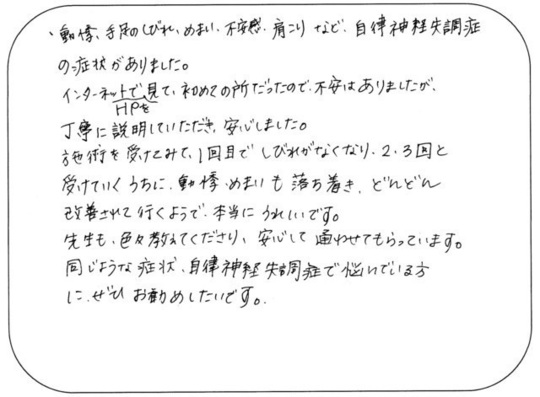 ・動悸、手足のしびれ、めまい、不安感、肩こりなど、自律神経失調症
の症状がありました。
インターネットでHPを見て、初めての所だったので、不安はありましたが、
丁寧に説明していただき、安心しました。
施術を受けてみて、1回目でしびれがなくなり、2、3回と
受けていくうちに、動悸・めまいも落ち着き、どんどん
改善されて行くようで、本当にうれしいです。
先生も、色々教えてくださり、安心して通わせてもらっています。
同じような症状、自律神経失調症で悩んでいる方
に、ぜひお勧めしたいです。